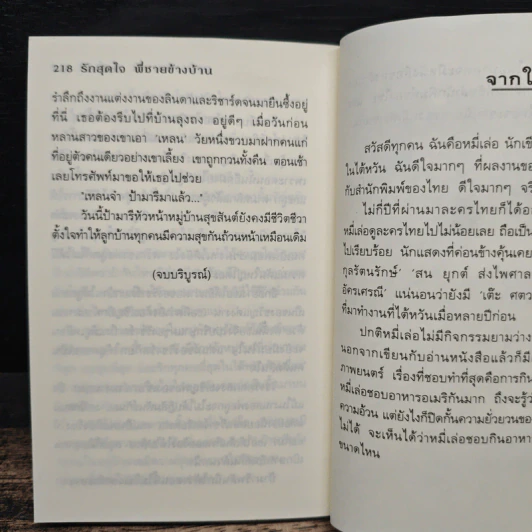 218 รักสุดใจ พี่ชายข้างบ้าน
รำลึกถึงงานแต่งงานของลินดาและริชาร์ดจนมายืนซึ้งอยู่
ที่นี่ เธอต้องรีบไปที่บ้านลุงถง อยู่ดีๆ เมื่อวันก่อน
หลานสาวของเขาเอา 'เหลน' วัยหนึ่งขวบมาฝากคนแก่
ที่อยู่ตัวคนเดียวอย่างเขาเลี้ยง เขาถูกกวนทั้งคืน ตอนเช้า
เลยโทรศัพท์มาขอให้เธอไปช่วย
'เหลนจ๋า ป้ามารีมาแล้ว...'
วันนี้ป้ามารีหัวหน้าหมู่บ้านสุขสันต์ยังคงมีชีวิตชีวา
ตั้งใจทำให้ลูกบ้านทุกคนมีความสุขกันถ้วนหน้าเหมือนเดิม
(จบบริบูรณ์)
จากใ
สวัสดีทุกคน ฉันคือหมี่เล่อ นักเขี
ในไต้หวัน ฉันดีใจมากๆ ที่ผลงานขอ
กับสำนักพิมพ์ของไทย ดีใจมากๆ จริ
ไม่กี่ปีที่ผ่านมาละครไทยก็ได้อ
หมี่เล่อดูละครไทยไปไม่น้อยเลย ถือเป็น
ไปเรียบร้อย นักแสดงที่ค่อนข้างคุ้นเคย
กุลรัตนรักษ์' 'สน ยุกต์ ส่งไพศาล
อัครเศรณี' แน่นอนว่ายังมี 'เต๊ะ ศตว
ที่มาทำงานที่ไต้หวันเมื่อหลายปีก่อน
ปกติหมี่เล่อไม่มีกิจกรรมยามว่าง
นอกจากเขียนกับอ่านหนังสือแล้วก็มี
ภาพยนตร์ เรื่องที่ชอบทำที่สุดคือการกิน
หมี่เล่อชอบอาหารอเมริกันมาก ถึงจะรู้ว
ความอ้วน แต่ยังไงก็ปิดกั้นความยั่วยวนขอ
ไม่ได้ จะเห็นได้ว่าหมี่เล่อชอบกินอาหาร
ขนาดไหน